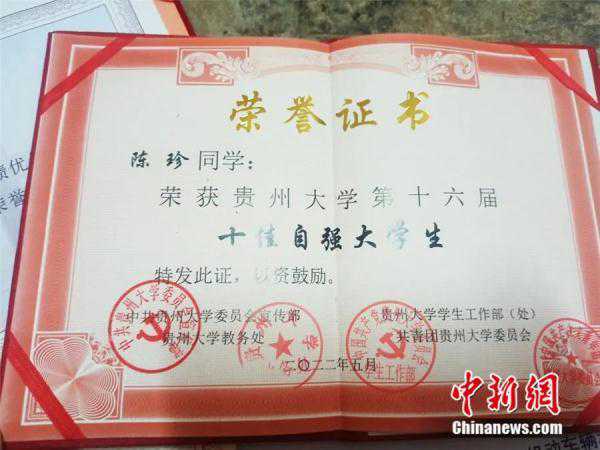 荣誉证书
陈珍同学：
荣获贵州大学第十六届
十佳自强大学生
特发此证，以资鼓励。
中共贵州大学委员会宣传部 贵州大学学生工作部（处）
贵州大学教务处 共青团贵州大学委员会
二〇二二年五月
中新网
www.chinanews.com